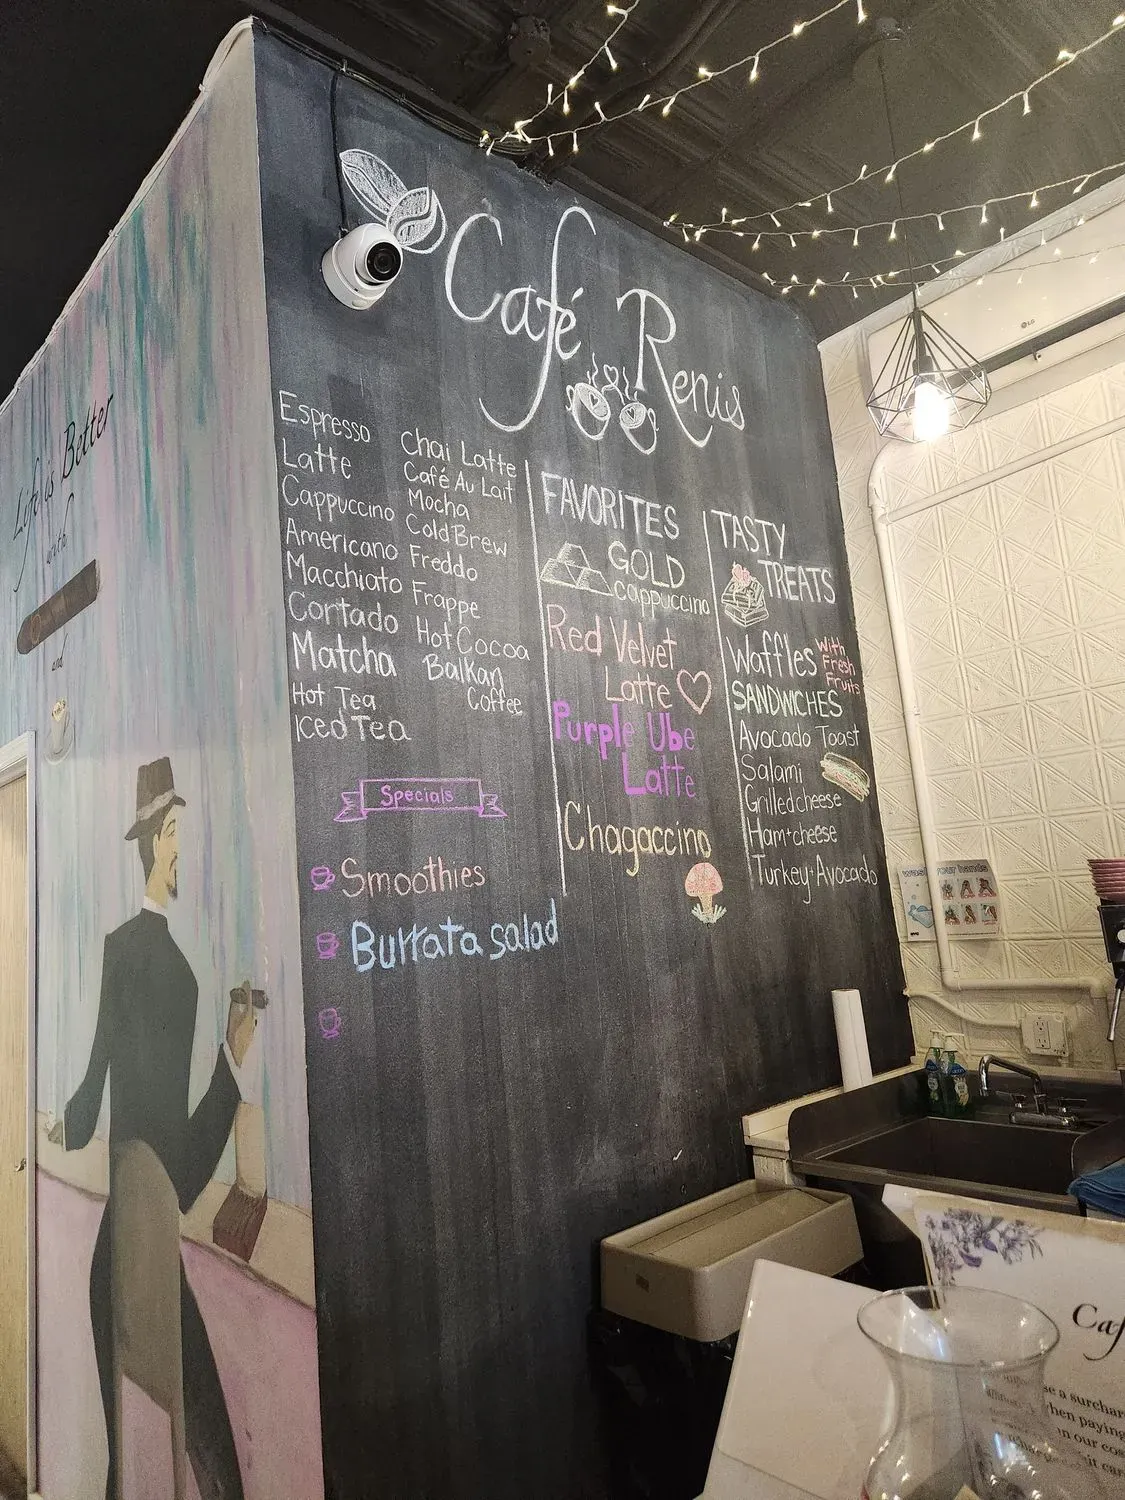 Café Renis
Espresso
Latte
Cappuccino
Americano
Macchiato
Cortado
Matcha
Hot Tea
Iced Tea
Chai Latte
Café Au Lait
Mocha
Cold Brew
Freddo
Frappe
Hot Cocoa
Balkan
Coffee
Specials
Smoothies
Burrata salad
FAVORITES
GOLD
cappuccino
Red Velvet
Latte
Purple Ube
Latte
Chagaccino
TASTY
TREATS
Waffles With
Fresh
Fruits
SANDWICHES
Avocado Toast
Salami
Grilled cheese
Ham+cheese
Turkey+Avocado
Life is Better
with
and
LG
wash your hands
Caf
se a surchar
when paying
in our cos
it car